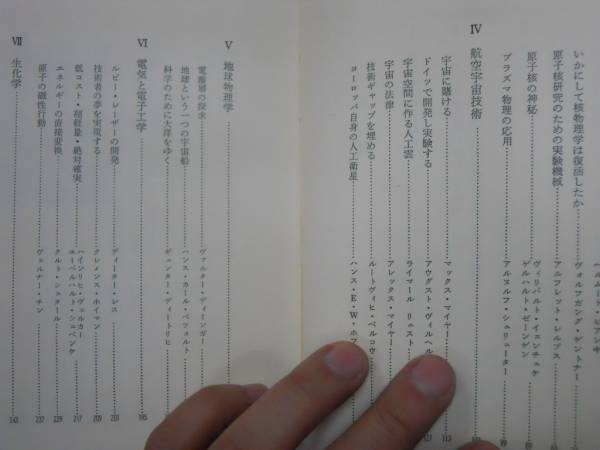 いかにして核物理学は復活したか
ヴォルフガング・ゲントナー
原子核研究のための実験機械
アルフレット・レルプス
原子核の神秘
ヴィリバルト・イェンチュケ
ゲルハルト・ゼーンゲン
プラズマ物理の応用
アルヌルフ・シュリューター
99
Ⅳ 航空宇宙技術
107
宇宙に賭ける
マックス・マイヤー
113
ドイツで開発し実験する
アウグスト・ヴィルヘル
121
宇宙空間に作る人工雲
ライマール リュスト
宇宙の法律
アレックス・マイヤー
技術ギャップを埋める
ルートヴィヒ・ベルコウ
ヨーロッパ自身の人工衛星
ハンス・E・W・ホフ
Ⅴ 地球物理学
電離層の探求
ヴァルター・ディミンガー
地球という一つの宇宙船
ハンス・カール・ペツォルト
科学のために大洋をゆく
ギュンター・ディートリヒ
Ⅵ 電気と電子工学
195
ルビー・レーザーの開発
ディーター・レス
203
技術者の夢を実現する
クレメンス・ホイマン
209
低コスト・超軽量・絶対確実
ハインリヒ・ヴェルカー
エーベルハルト・シュペンケ
217
エネルギーの直接変換
クルト・シュタール
229
原子の磁性行動
ヴェルナー・チン
237
Ⅶ 生化学
243